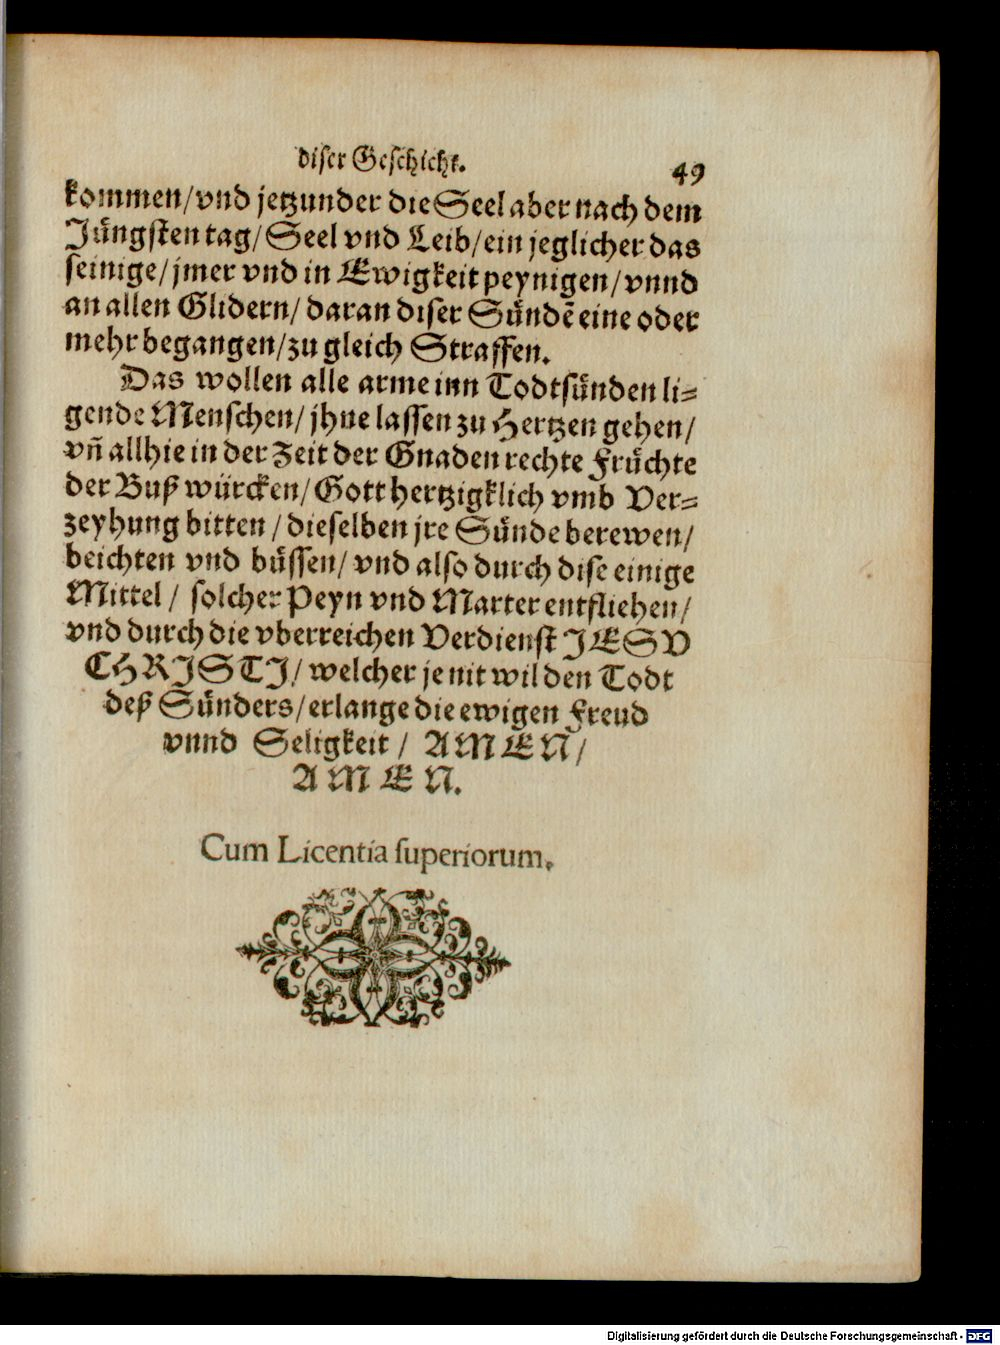 diser Geschicht. 49
kommen/ vnd jetzunder die Seel aber nach dem
Jüngsten tag/ Seel vnd Leib/ ein jeglicher das
seinige/ jmer vnd in Ewigkeit peynigen/ vnnd
an allen Glidern/ daran diser Sündẽ eine oder
mehr begangen/ zu gleich Straffen.
Das wollen alle arme inn Todtsünden li⸗
gende Menschen/ jhne lassen zu Hertzen gehen/
vñ allhie in der Zeit der Gnaden rechte Früchte
der Buß würcken/ Gott hertzigklich vmb Ver⸗
zeyhung bitten/ dieselben jre Sünde berewen/
beichten vnd büssen/ vnd also durch dise einige
Mittel/ solcher Peyn vnd Marter entfliehen/
vnd durch die vberreichen Verdienst JESV
CHRJSTJ/ welcher je nit wil den Todt
deß Sünders/ erlange die ewigen Freud
vnnd Seligkeit/ AMEN/
AMEN.
Cum Licentia superiorum.
Digitalisierung gefördert durch die Deutsche Forschungsgemeinschaft - DFG